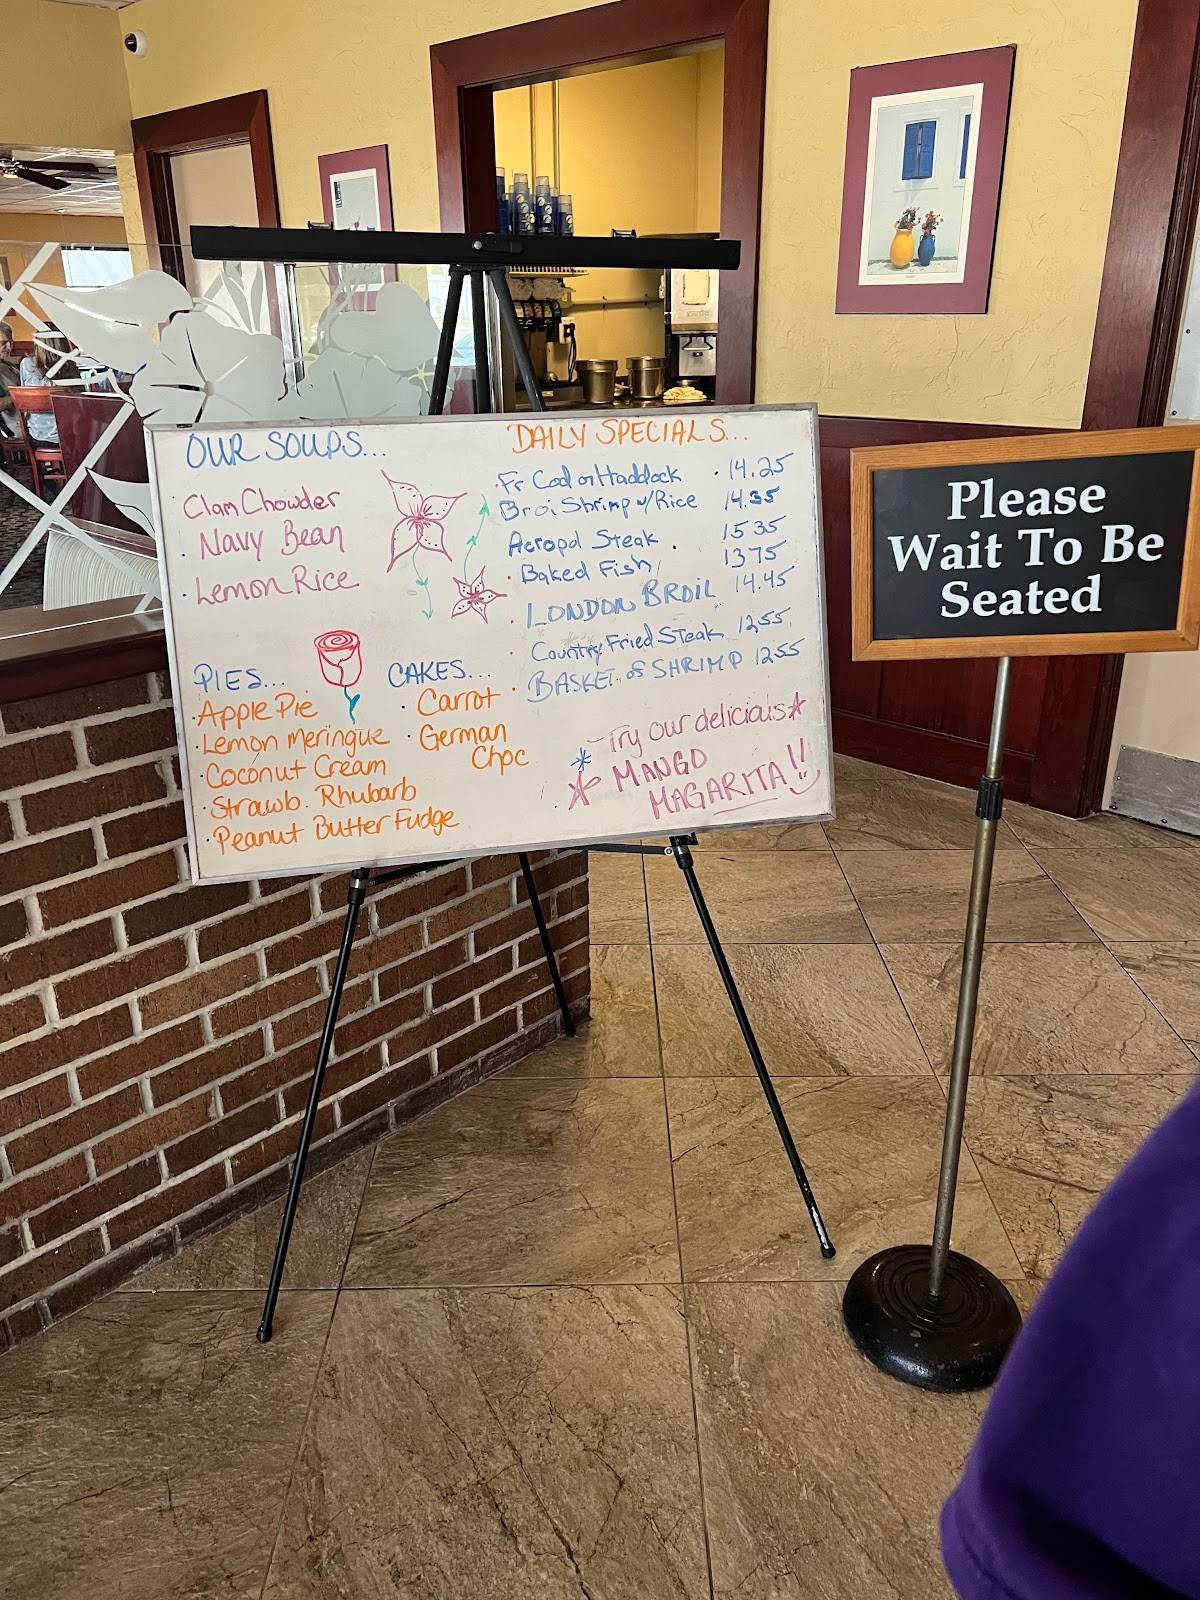 OUR SOUPS...
Clam Chowder
Navy Bean
Lemon Rice
PIES...
Apple Pie
Lemon Meringue
Coconut Cream
Strawb. Rhubarb
Peanut Butter Fudge
CAKES...
Carrot
German
Choc
DAILY SPECIALS...
Fr Cod or Haddock 14.25
Broi Shrimp w/Rice 14.35
Acropol Steak 15 35
Baked Fish 13 75
LONDON BROIL 14.45
Country Fried Steak 12 55
BASKET of SHRIMP 12 55
Try our delicious
MANGO
MAGARITA!!
Please
Wait To Be
Seated